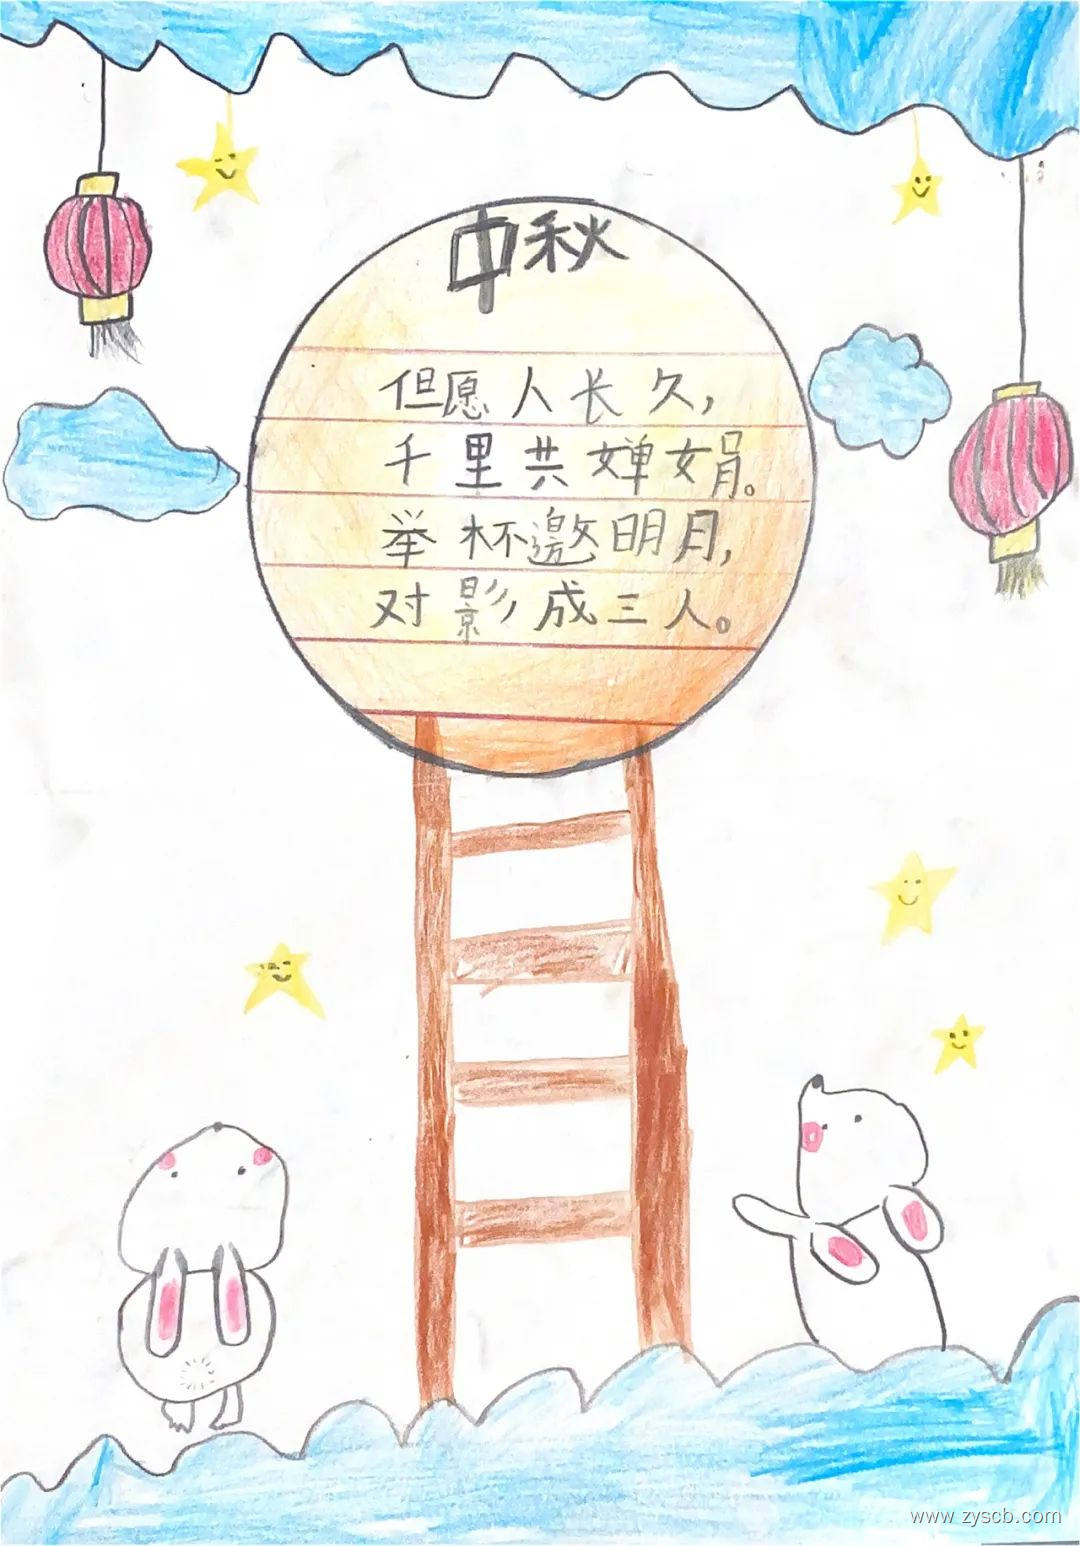 中秋
但愿人长久,
千里共婵娟。
举杯邀明月,
对影成三人。
www.zyscb.com